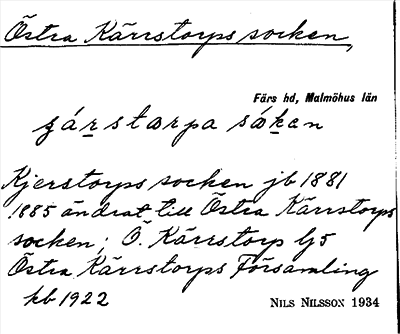 Östra Kärrstorps socken,
Färs hd, Malmöhus län
Kjerstorps socken jb 1881
1885 ändrat till Östra Kärrstorps
socken; Ö. Kärrstorp lj5
Östra Kärrstorps Församling
kb 1922
NILS NILSSON 1934